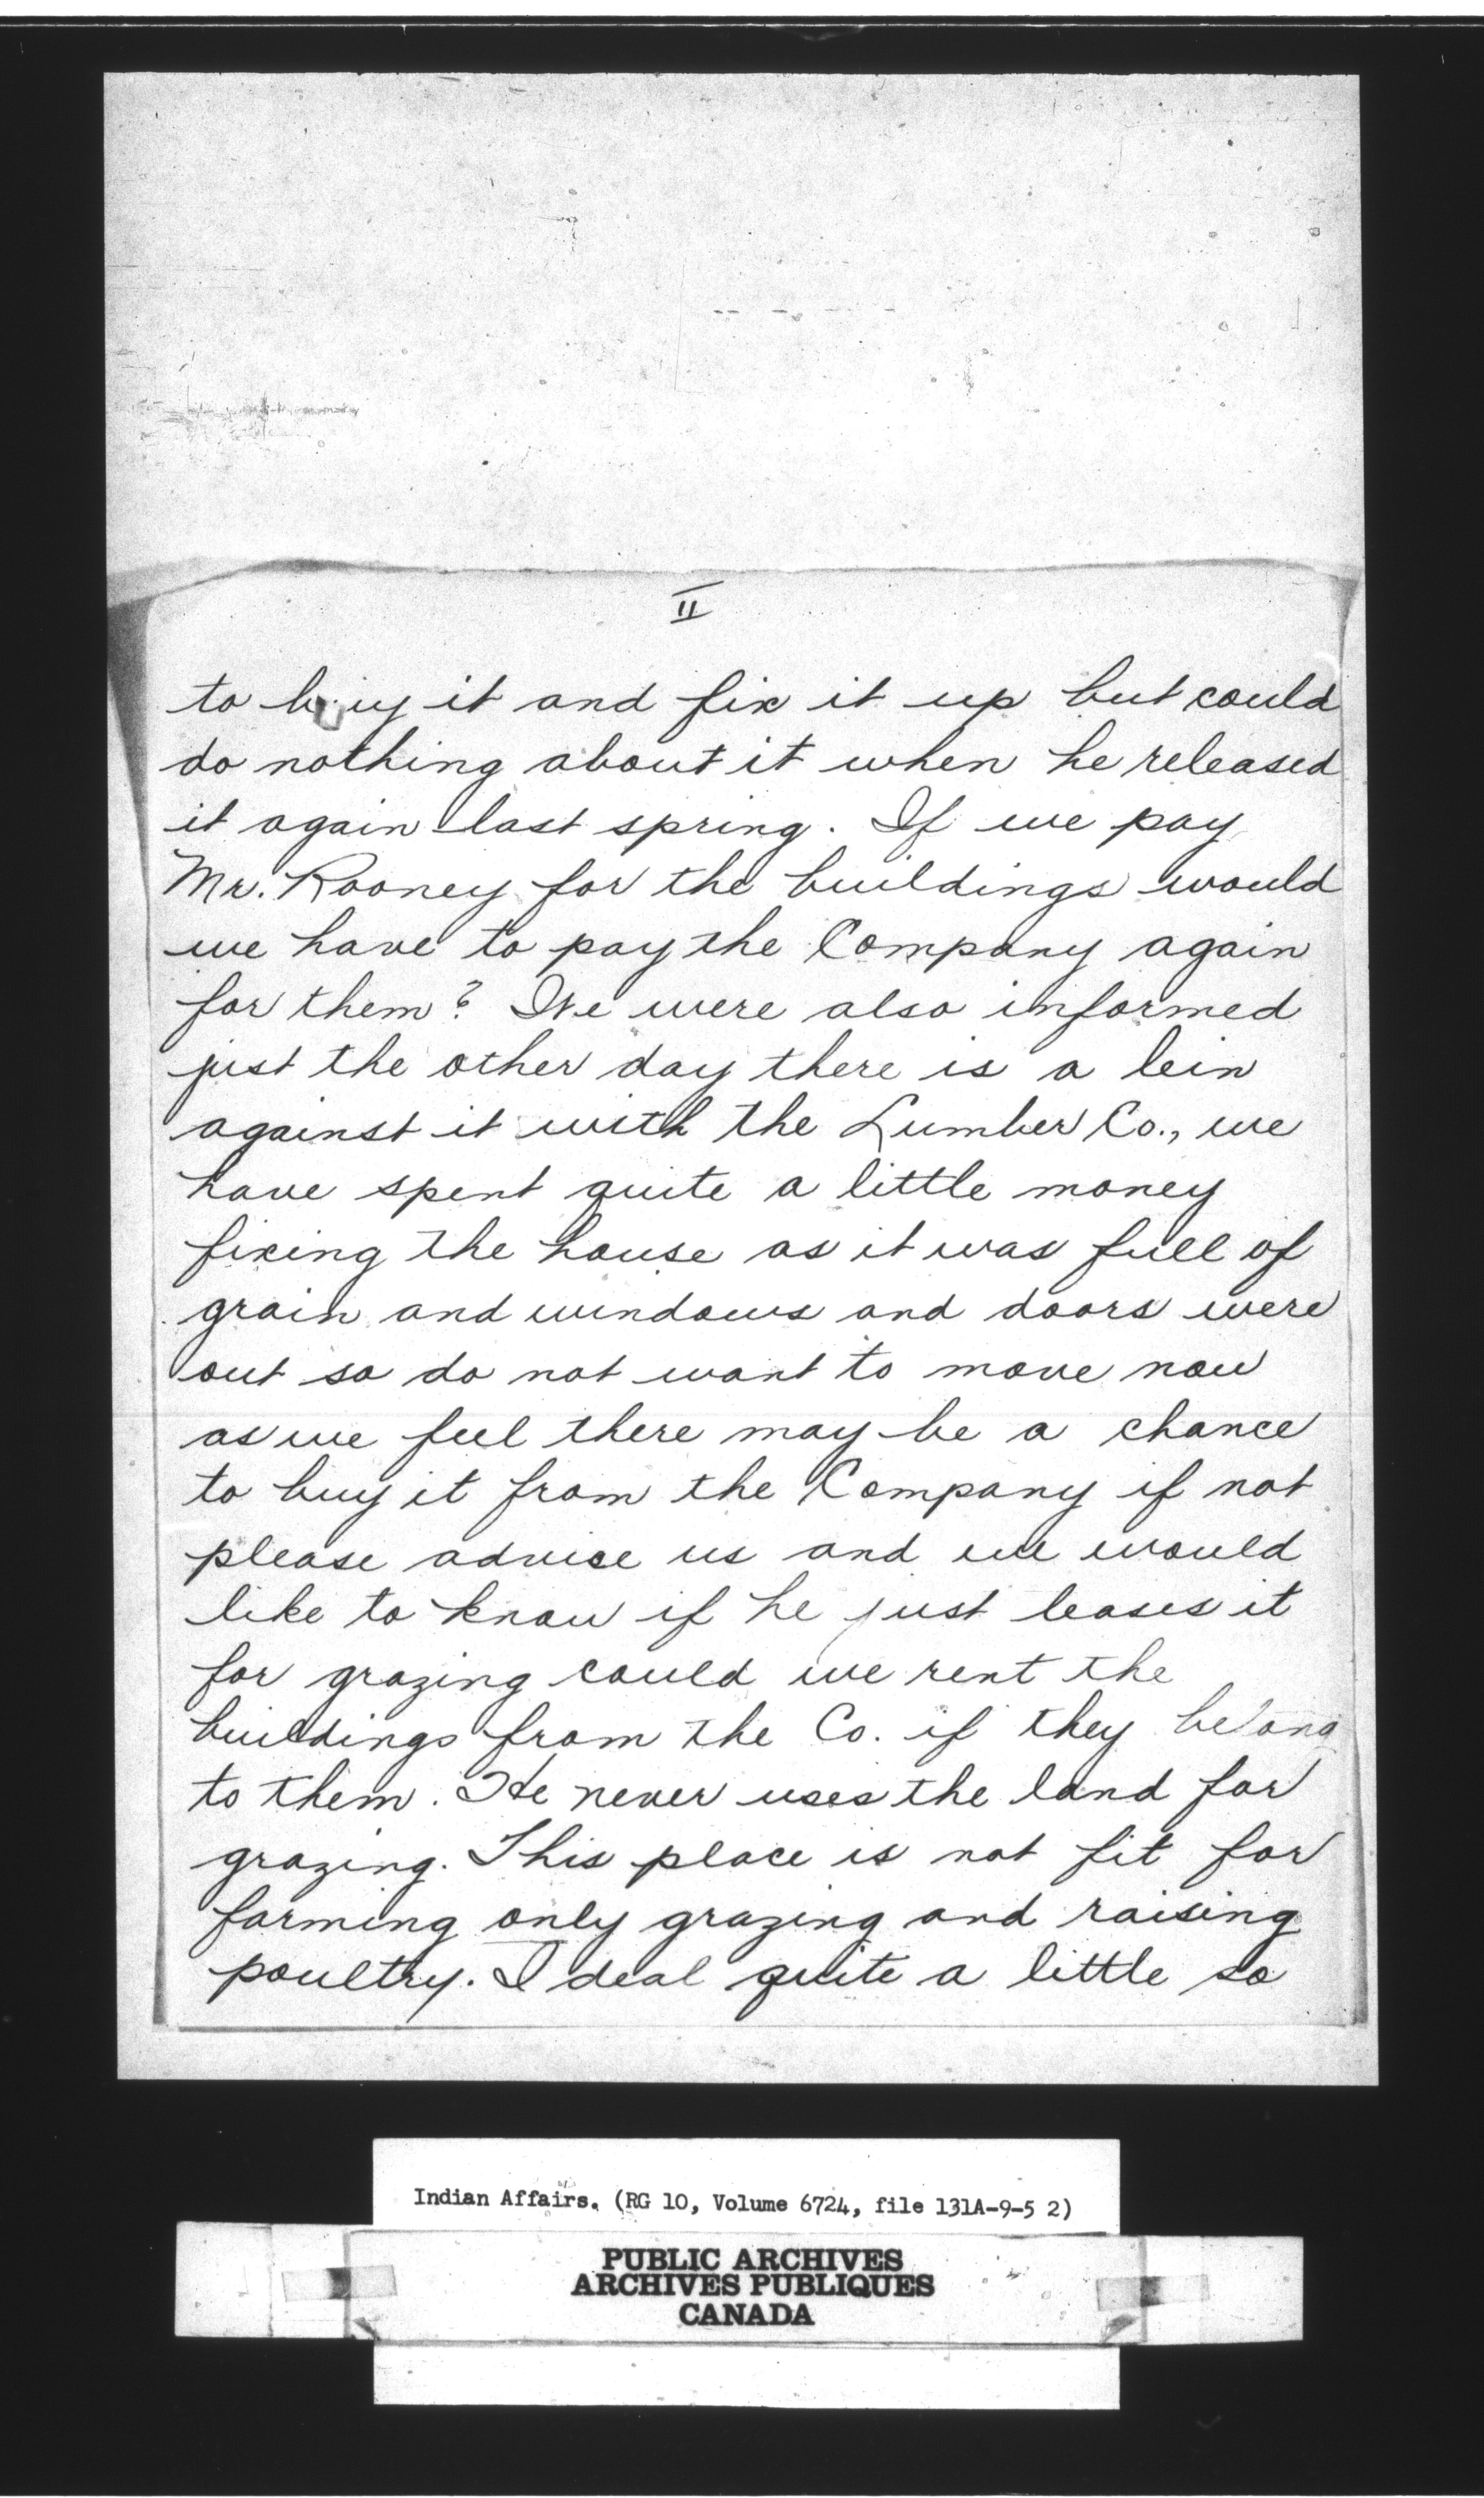 II
to buy it and fix it up but could
do nothing about it when he released
it again last spring. If we pay
Mr. Rooney for the buildings would
we have to pay the Company again
for them? We were also informed
just the other day there is a lein
against it with the Lumber Co., we
have spent quite a little money
fixing the house as it was full of
grain and windows and doors were
out so do not want to move now
as we feel there may be a chance
to buy it from the Company if not
please advice us and we would
like to know if he just leases it
for grazing could we rent the
buildings from the Co. if they belong
to them. He never uses the land for
grazing. This place is not fit for
farming only grazing and raising
poultry. I deal quite a little so
Indian Affairs. (RG 10, Volume 6724, file 131A-9-5 2)
PUBLIC ARCHIVES
ARCHIVES PUBLIQUES
CANADA